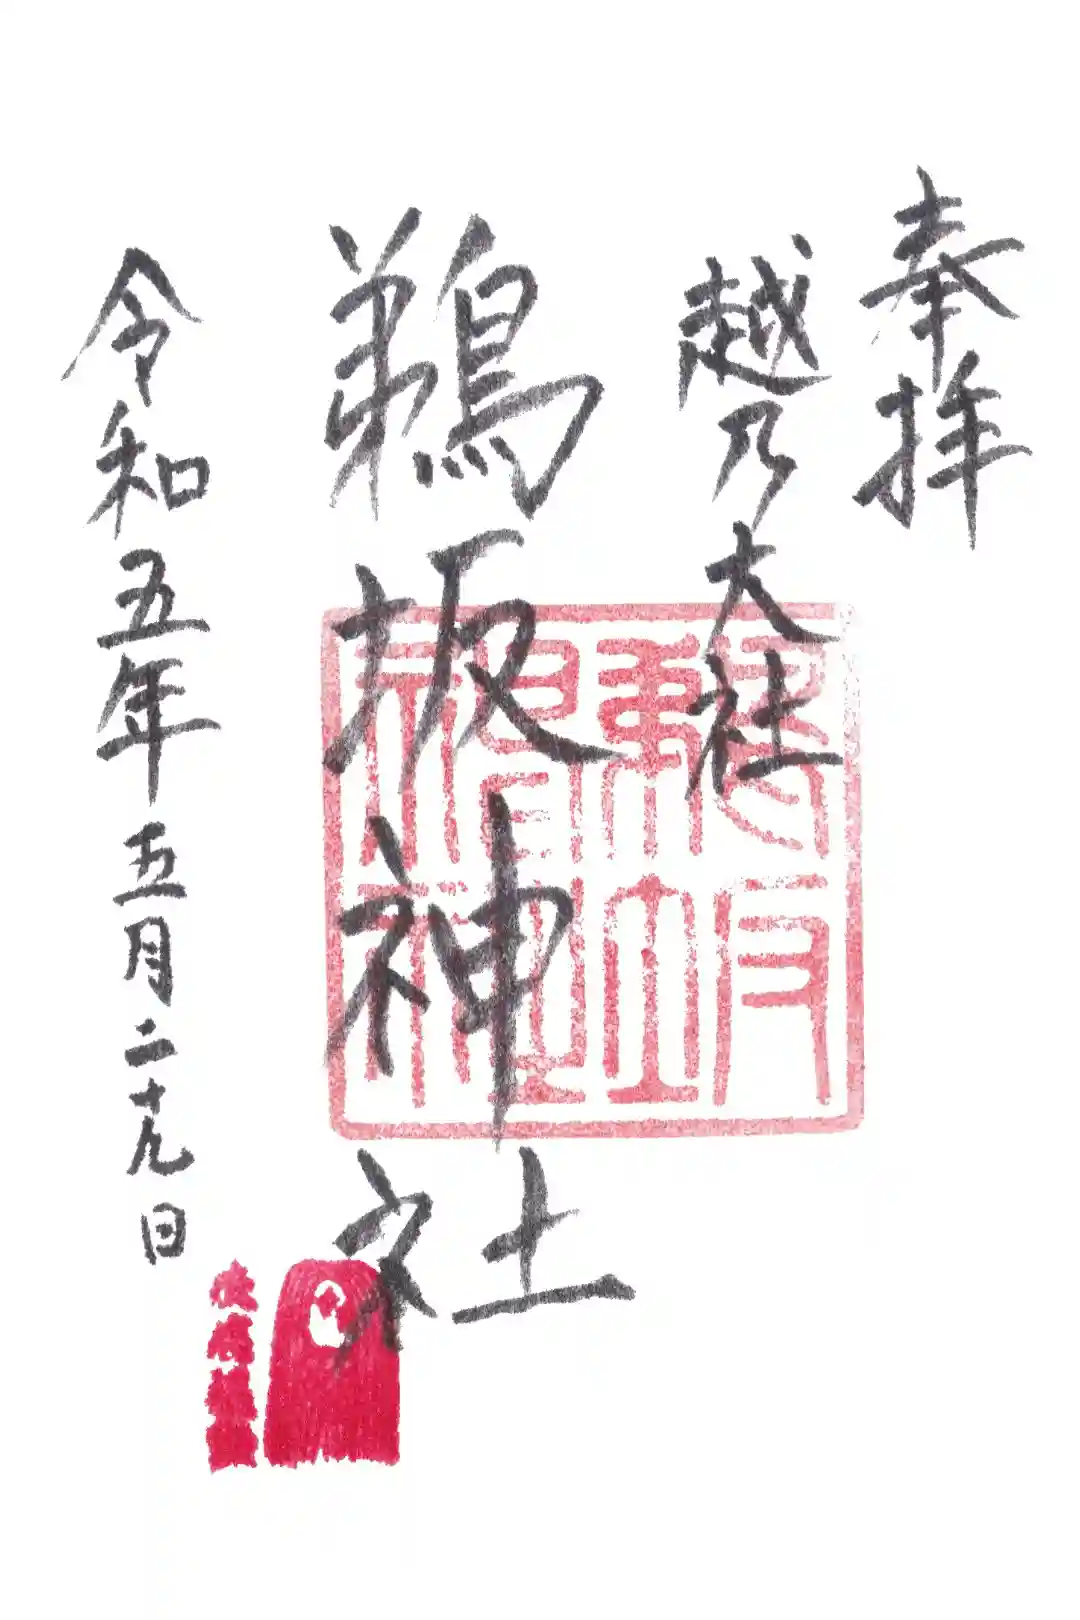 奉拝
越乃大社
鵜坂神社
令和五年五月二十九日